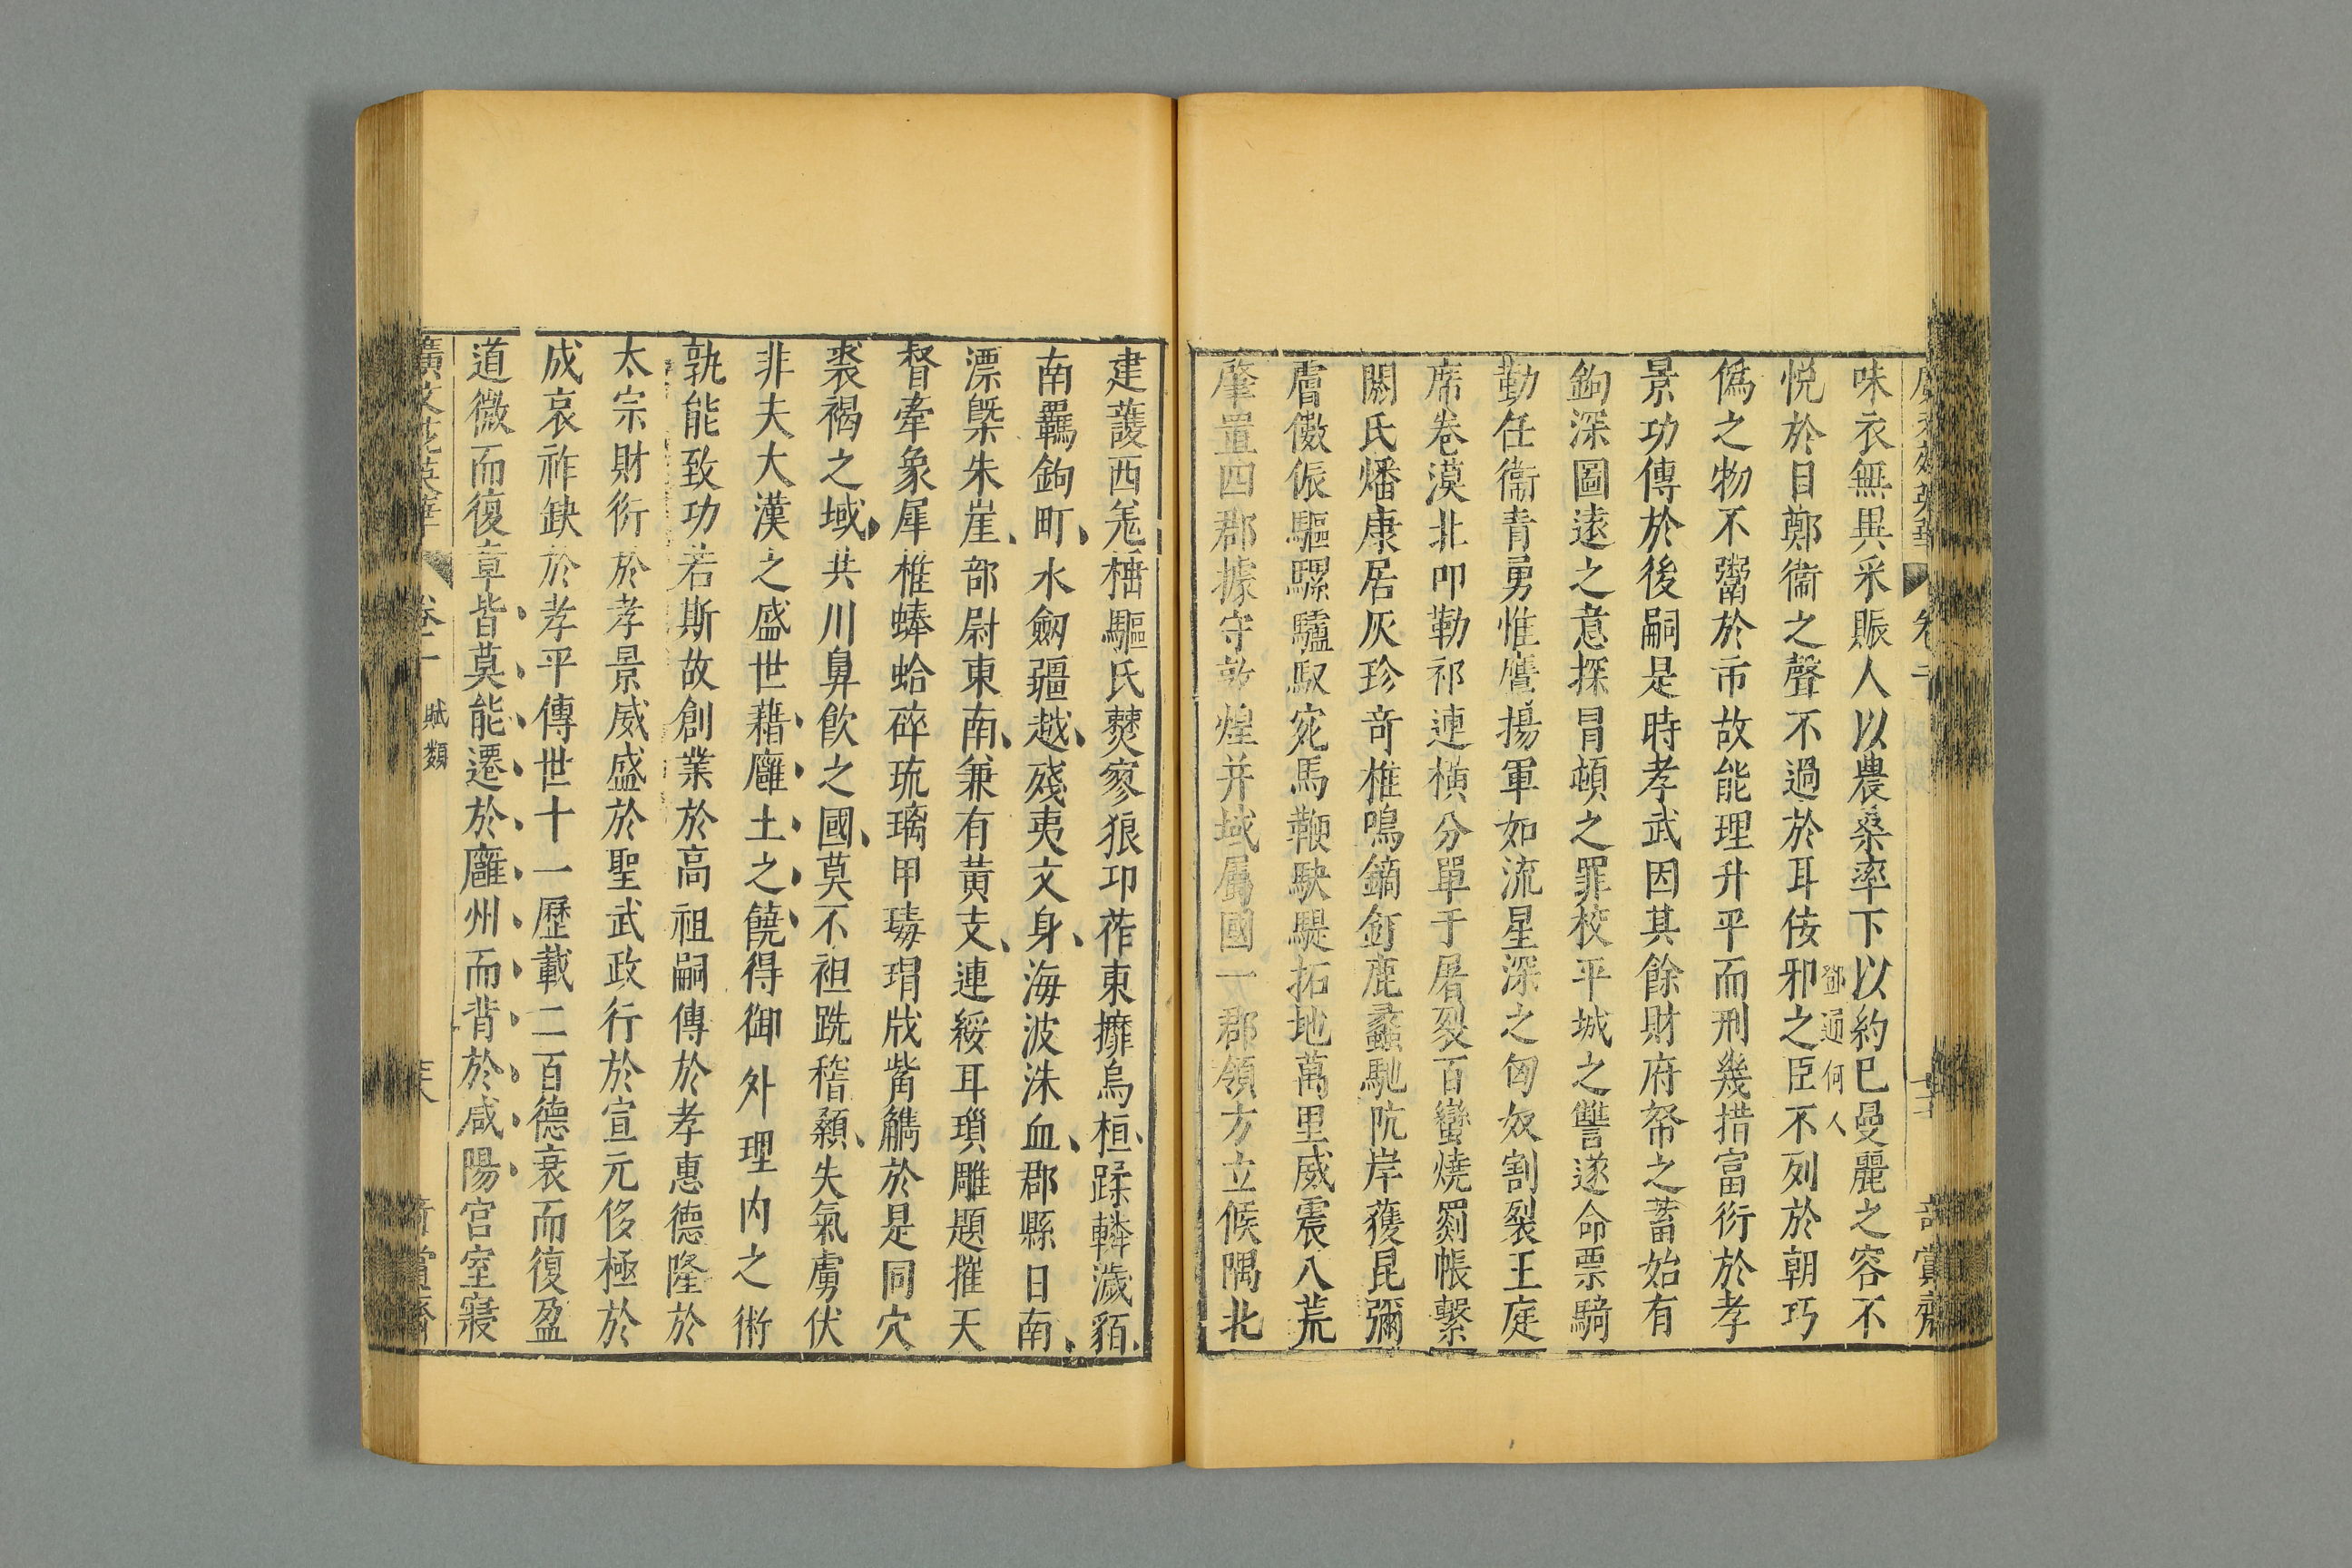 味衣無異采賑人以農桑率下以約已曼麗之容不
鄧通何人
悦於目鄭衞之聲不過於耳佞邪之臣不列於朝巧
僞之物不鬻於市故能理升平而刑幾措富衍於孝
景功傳於後嗣是時孝武因其餘財府帑之蓄始有
鉤深圖遠之意探冒頓之罪校平城之讐遂命票騎
勤任衞青勇惟鷹揚軍如流星深之匈奴割裂王庭
席卷漠北叩勒祁連橫分單于屠裂百蠻燒罽帳繫
閼氏燔康居灰珍奇椎鳴鏑釘鹿蠡馳阬岸獲昆彌
虜儌侲驅騾驢馭宛馬鞭駃騠拓地萬里威震八荒
肇置四郡據守敦煌并域屬國一郡領方立候隅北
建護西羌捶驅氐僰寥狼卭莋東攠烏桓蹂轔濊貊
南羈鉤町水劒彊越殘夷文身海波洙血郡縣日南
漂槩朱崖部尉東南兼有黃支連緩耳瑣雕題摧天
督牽象犀椎蜯蛤碎琉璃甲瑇瑁戕觜觿於是同穴
裘褐之域共川鼻飲之國莫不袒跣稽顙失氣虜伏
非夫大漢之盛世藉廱土之饒得御外理内之術
孰能致功若斯故創業於高祖嗣傳於孝惠德隆於
太宗財衍於孝景威盛於聖武政行於宣元侈極於
成哀祚缺於孝平傳世十一歷載二百德衰而復盈
道微而復章皆莫能遷於廱州而背於咸陽宮室寢
廣文苑英華
賦類
奇賞齋